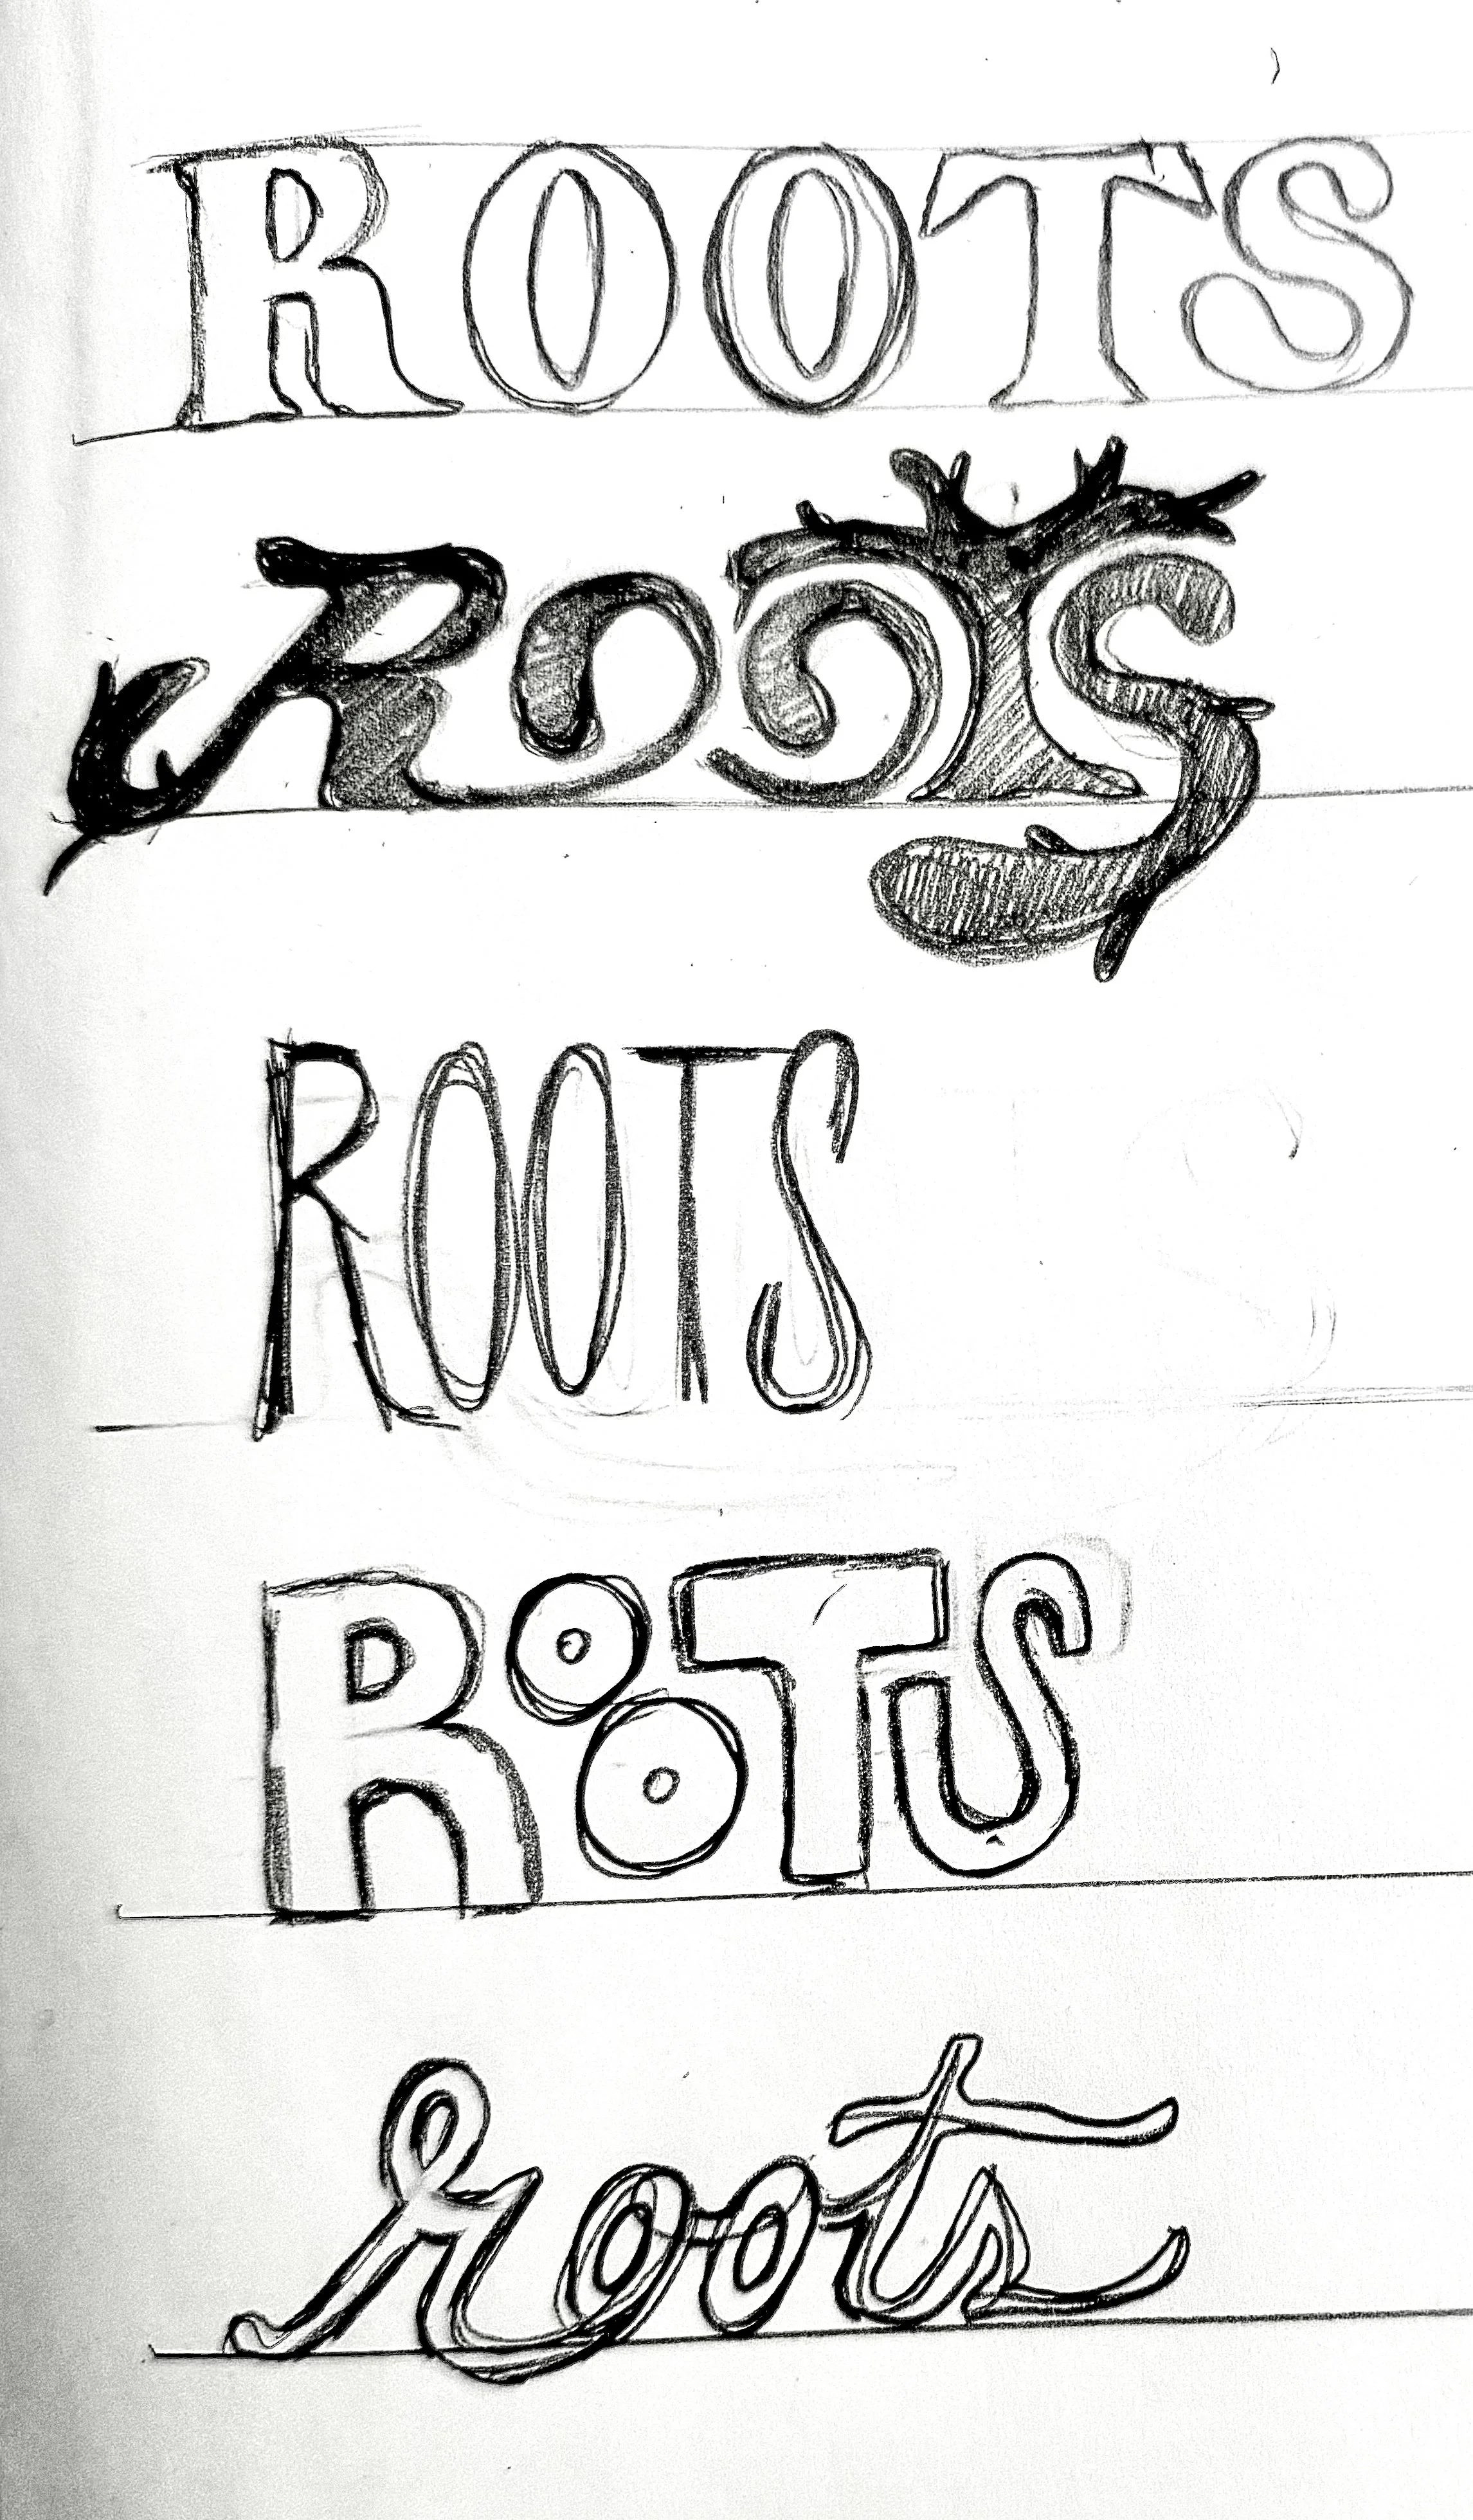 ROOTS
ROOTS
ROOTS
ROOTS
roots